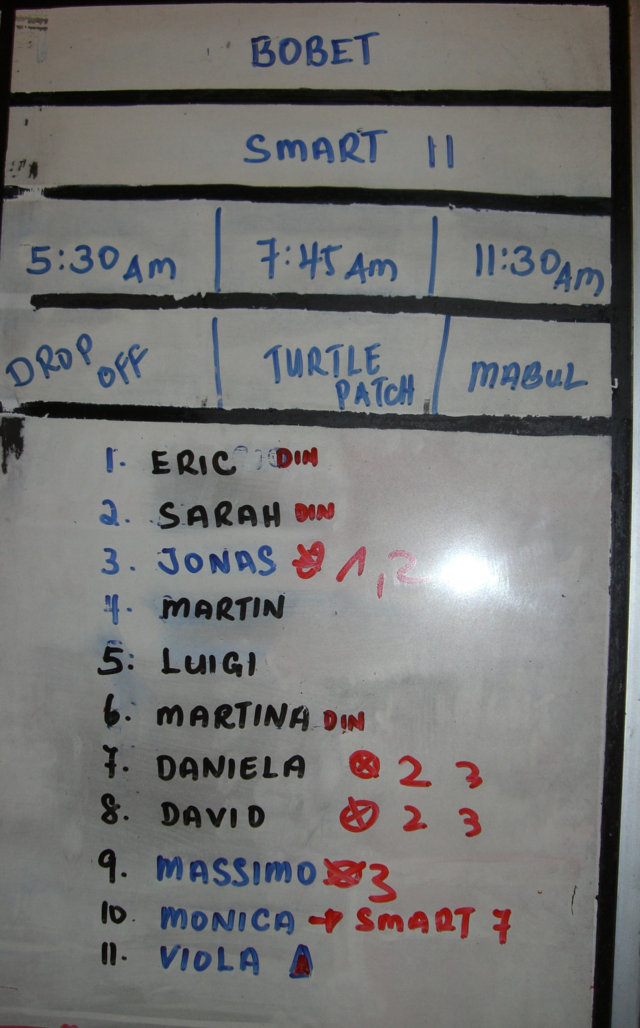 BOBET
SMART 11
5:30 AM 7:45 AM 11:30 AM
DROP OFF TURTLE PATCH MABUL
1. ERIC DIN
2. SARAH DIN
3. JONAS 1,2
4. MARTIN
5. LUIGI
6. MARTINA DIN
7. DANIELA 2 3
8. DAVID 2 3
9. MASSIMO 3
10. MONICA → SMART 7
11. VIOLA A